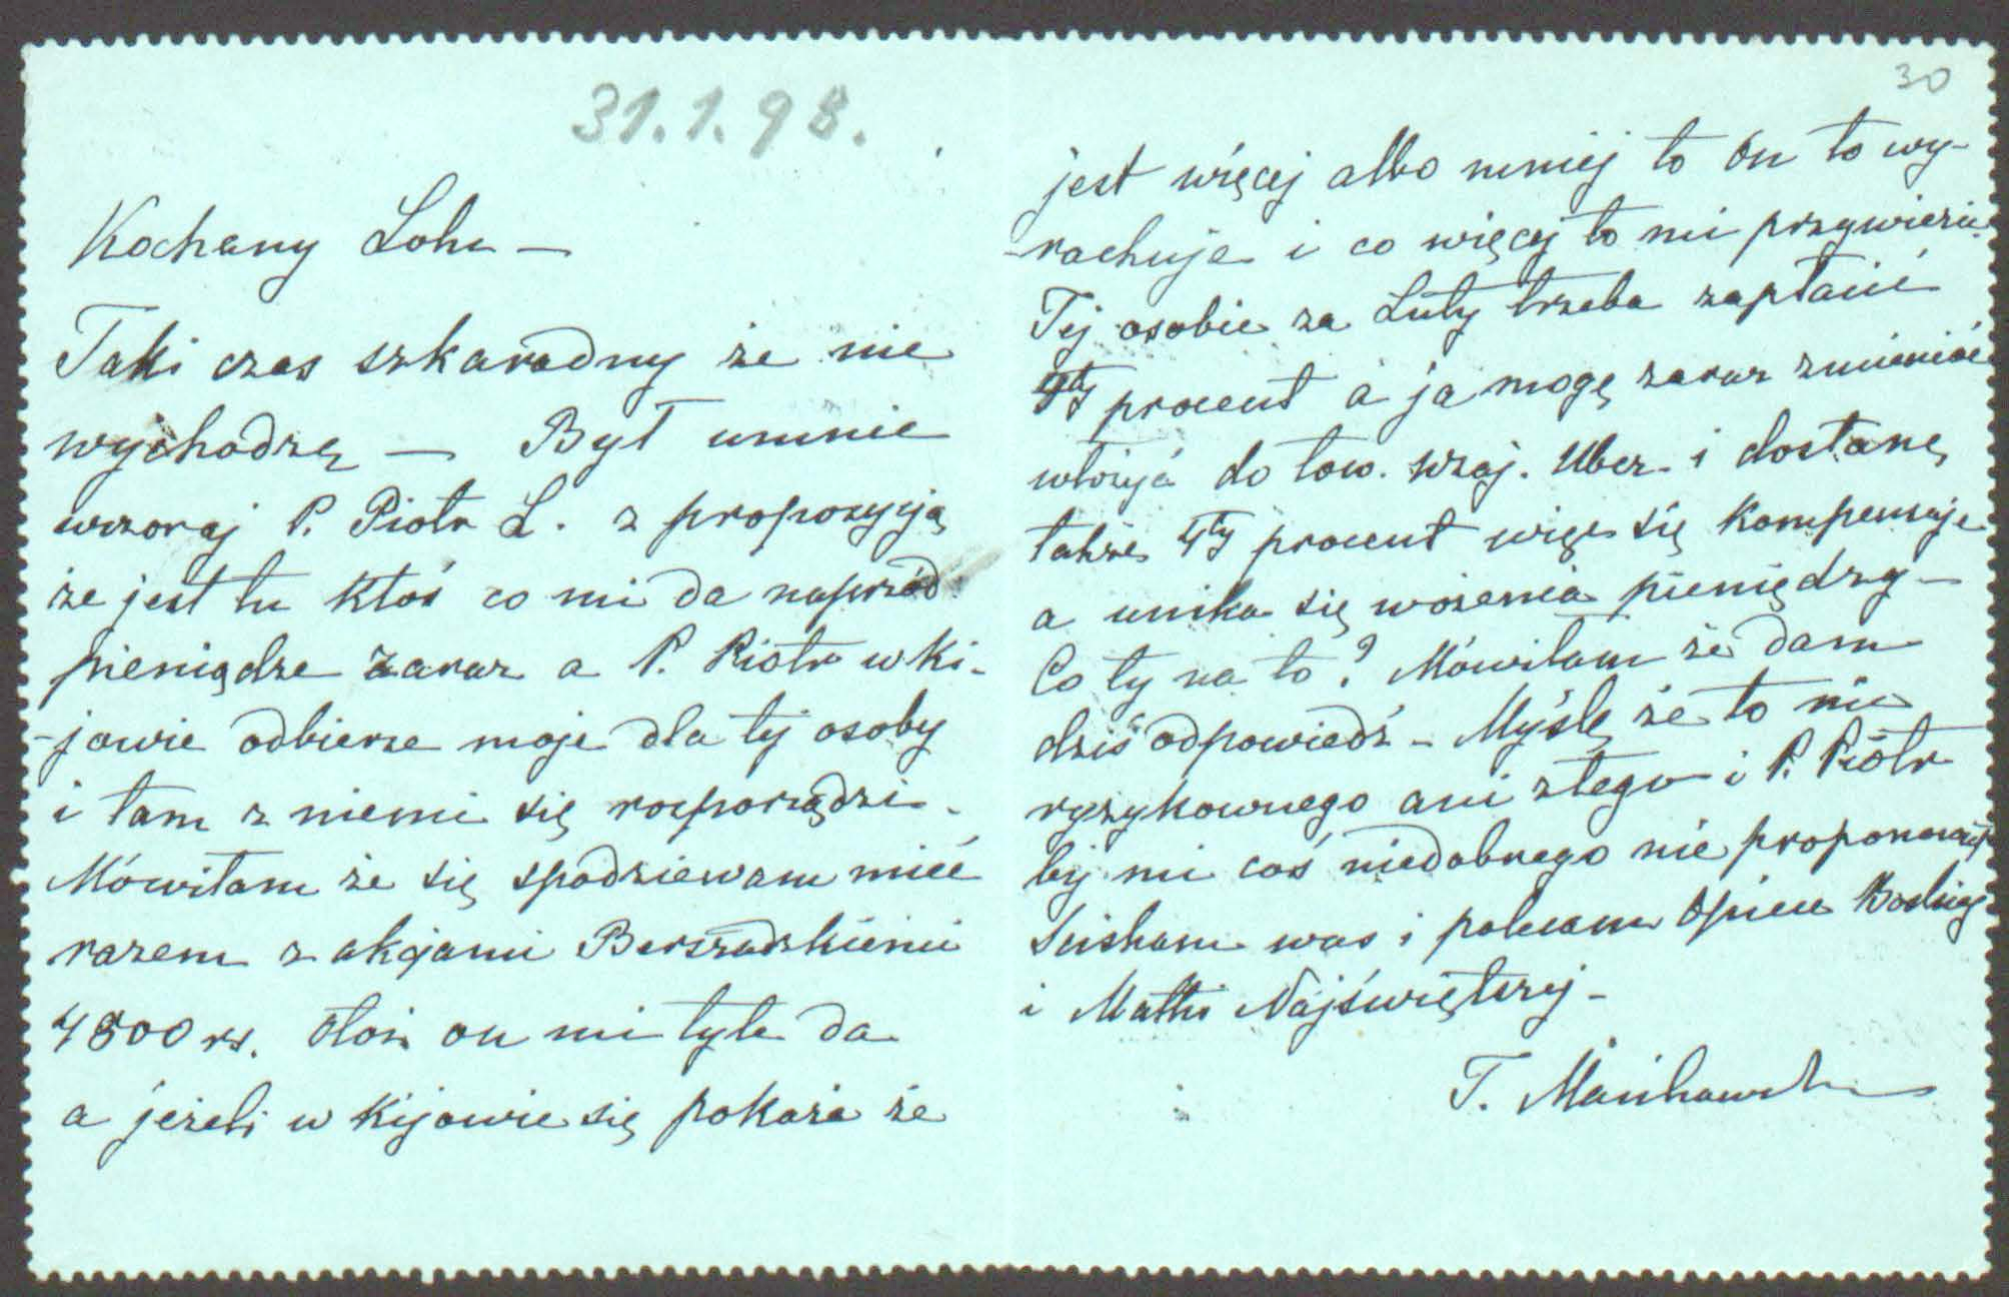 31.1.98.
30
Kochany Lolu —
Taki czas szkaradny że nie
wychodzę — Był umnie
wczoraj P. Piotr L. z propozycją
że jest tu ktoś co mi da naprzód
pieniądze zaraz a P. Piotr w Ki-
-jowie odbierze moje dla tej osoby
i tam z niemi się rozporządzi -
Mówiłam że się spodziewam mieć
razem z akcjami Berszadzkiemi
4800 rs. Otóż on mi tyle da
a jeżeli w Kijowie się pokaże że
jest więcej albo mniej to on to wy-
-rachuje i co więcej to mi przywiezie.
Tej osobie za Luty trzeba zapłacić
4ty procent a ja mogę zaraz
włożyć do tow. wzaj. Ubez. i dostanę
także 4ty procent więc się kompensuje
a unika się wożenia pieniędzy —
Co ty na to? Mówiłam że dam
dziś odpowiedź - Myślę że to nic
ryzykownego ani złego i P. Piotr
by mi coś niedobrego nie proponował
Sciskam was i polecam Opiece Boskiej
i Matki Najświętszej -
T.